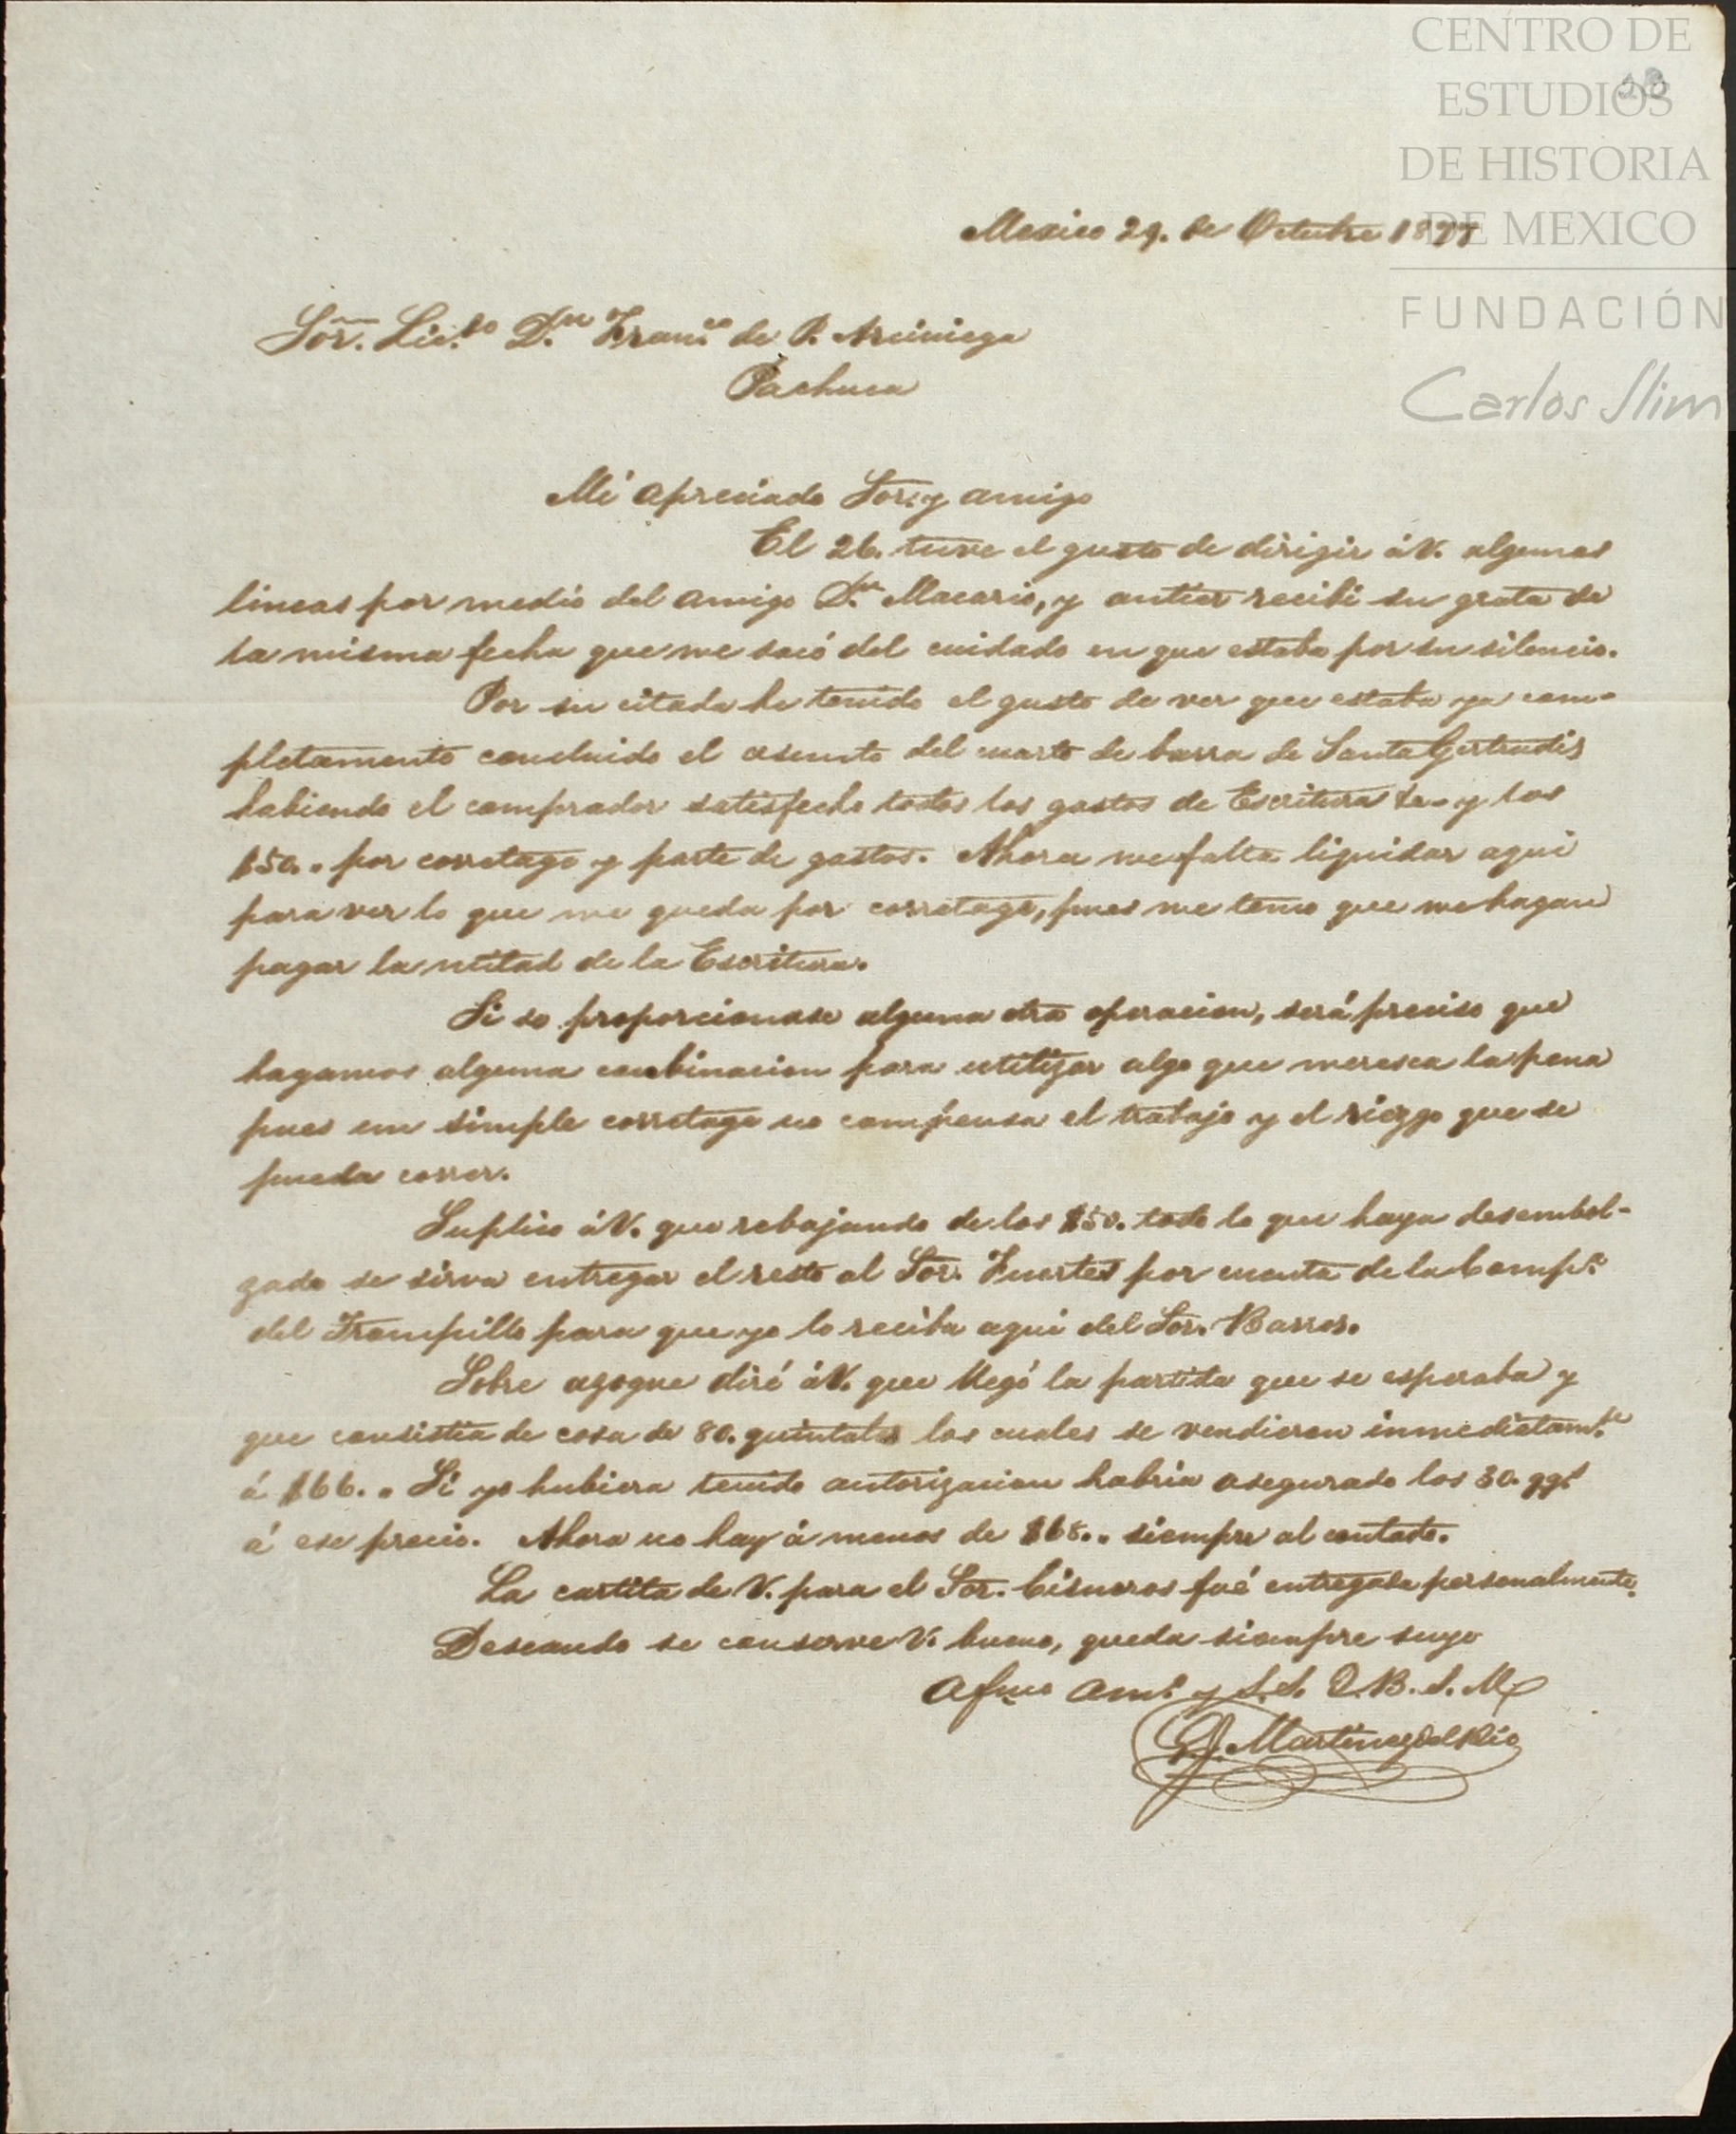 CENTRO DE
ESTUDIOS
DE HISTORIA
DE MEXICO
FUNDACIÓN
Carlos Slim
Mexico 29. de Octubre 1877
Sõr. Lic.do D.n Fran.co de P. Arciniega
Pachuca
Mi apreciado Sor. y amigo
El 26. tuve el gusto de dirigir á V. algunas
lineas por medio del amigo D.n Macario, y antier recibi su grata de
la misma fecha que me sacó del cuidado en que estaba por su silencio.
Por su citada he tenido el gusto de ver que estaba ya com-
pletamente concluido el asunto del cuarto de barra de Santa Gertrudis
habiendo el comprador satisfecho todos los gastos de Escritura &a y los
$50.. por corretage y parte de gastos. Ahora me falta liquidar aqui
para ver lo que me queda por corretage, pues me temo que me hagan
pagar la mitad de la Escritura.
Si se proporcionase alguna otra operacion, será preciso que
hagamos alguna combinacion para utilizar algo que meresca la pena
pues un simple corretage no compensa el trabajo y el riezgo que se
pueda correr.
Suplico á V. que rebajando de los $50. todo lo que haya desembol-
zado se sirva entregar el resto al Sor. Fuertes por cuenta de la Comp.a
del Trompillo para que yo lo reciba aqui del Sor. Barros.
Sobre azogue diré á V. que llegó la partida que se esperaba y
que consistia de cosa de 80. quintales los cuales se vendieron inmediatam.te
á $66.. Si yo hubiera tenido autorizacion habria asegurado los 30. qq.s
á ese precio. Ahora no hay á menos de $68.. siempre al contado.
La cartita de V. para el Sor. Cisneros fué entregada personalmente.
Deseando se conserve V. bueno, queda siempre suyo
Afmo Am.o y S.S. Q.B.S.M.
Martinez del Rio